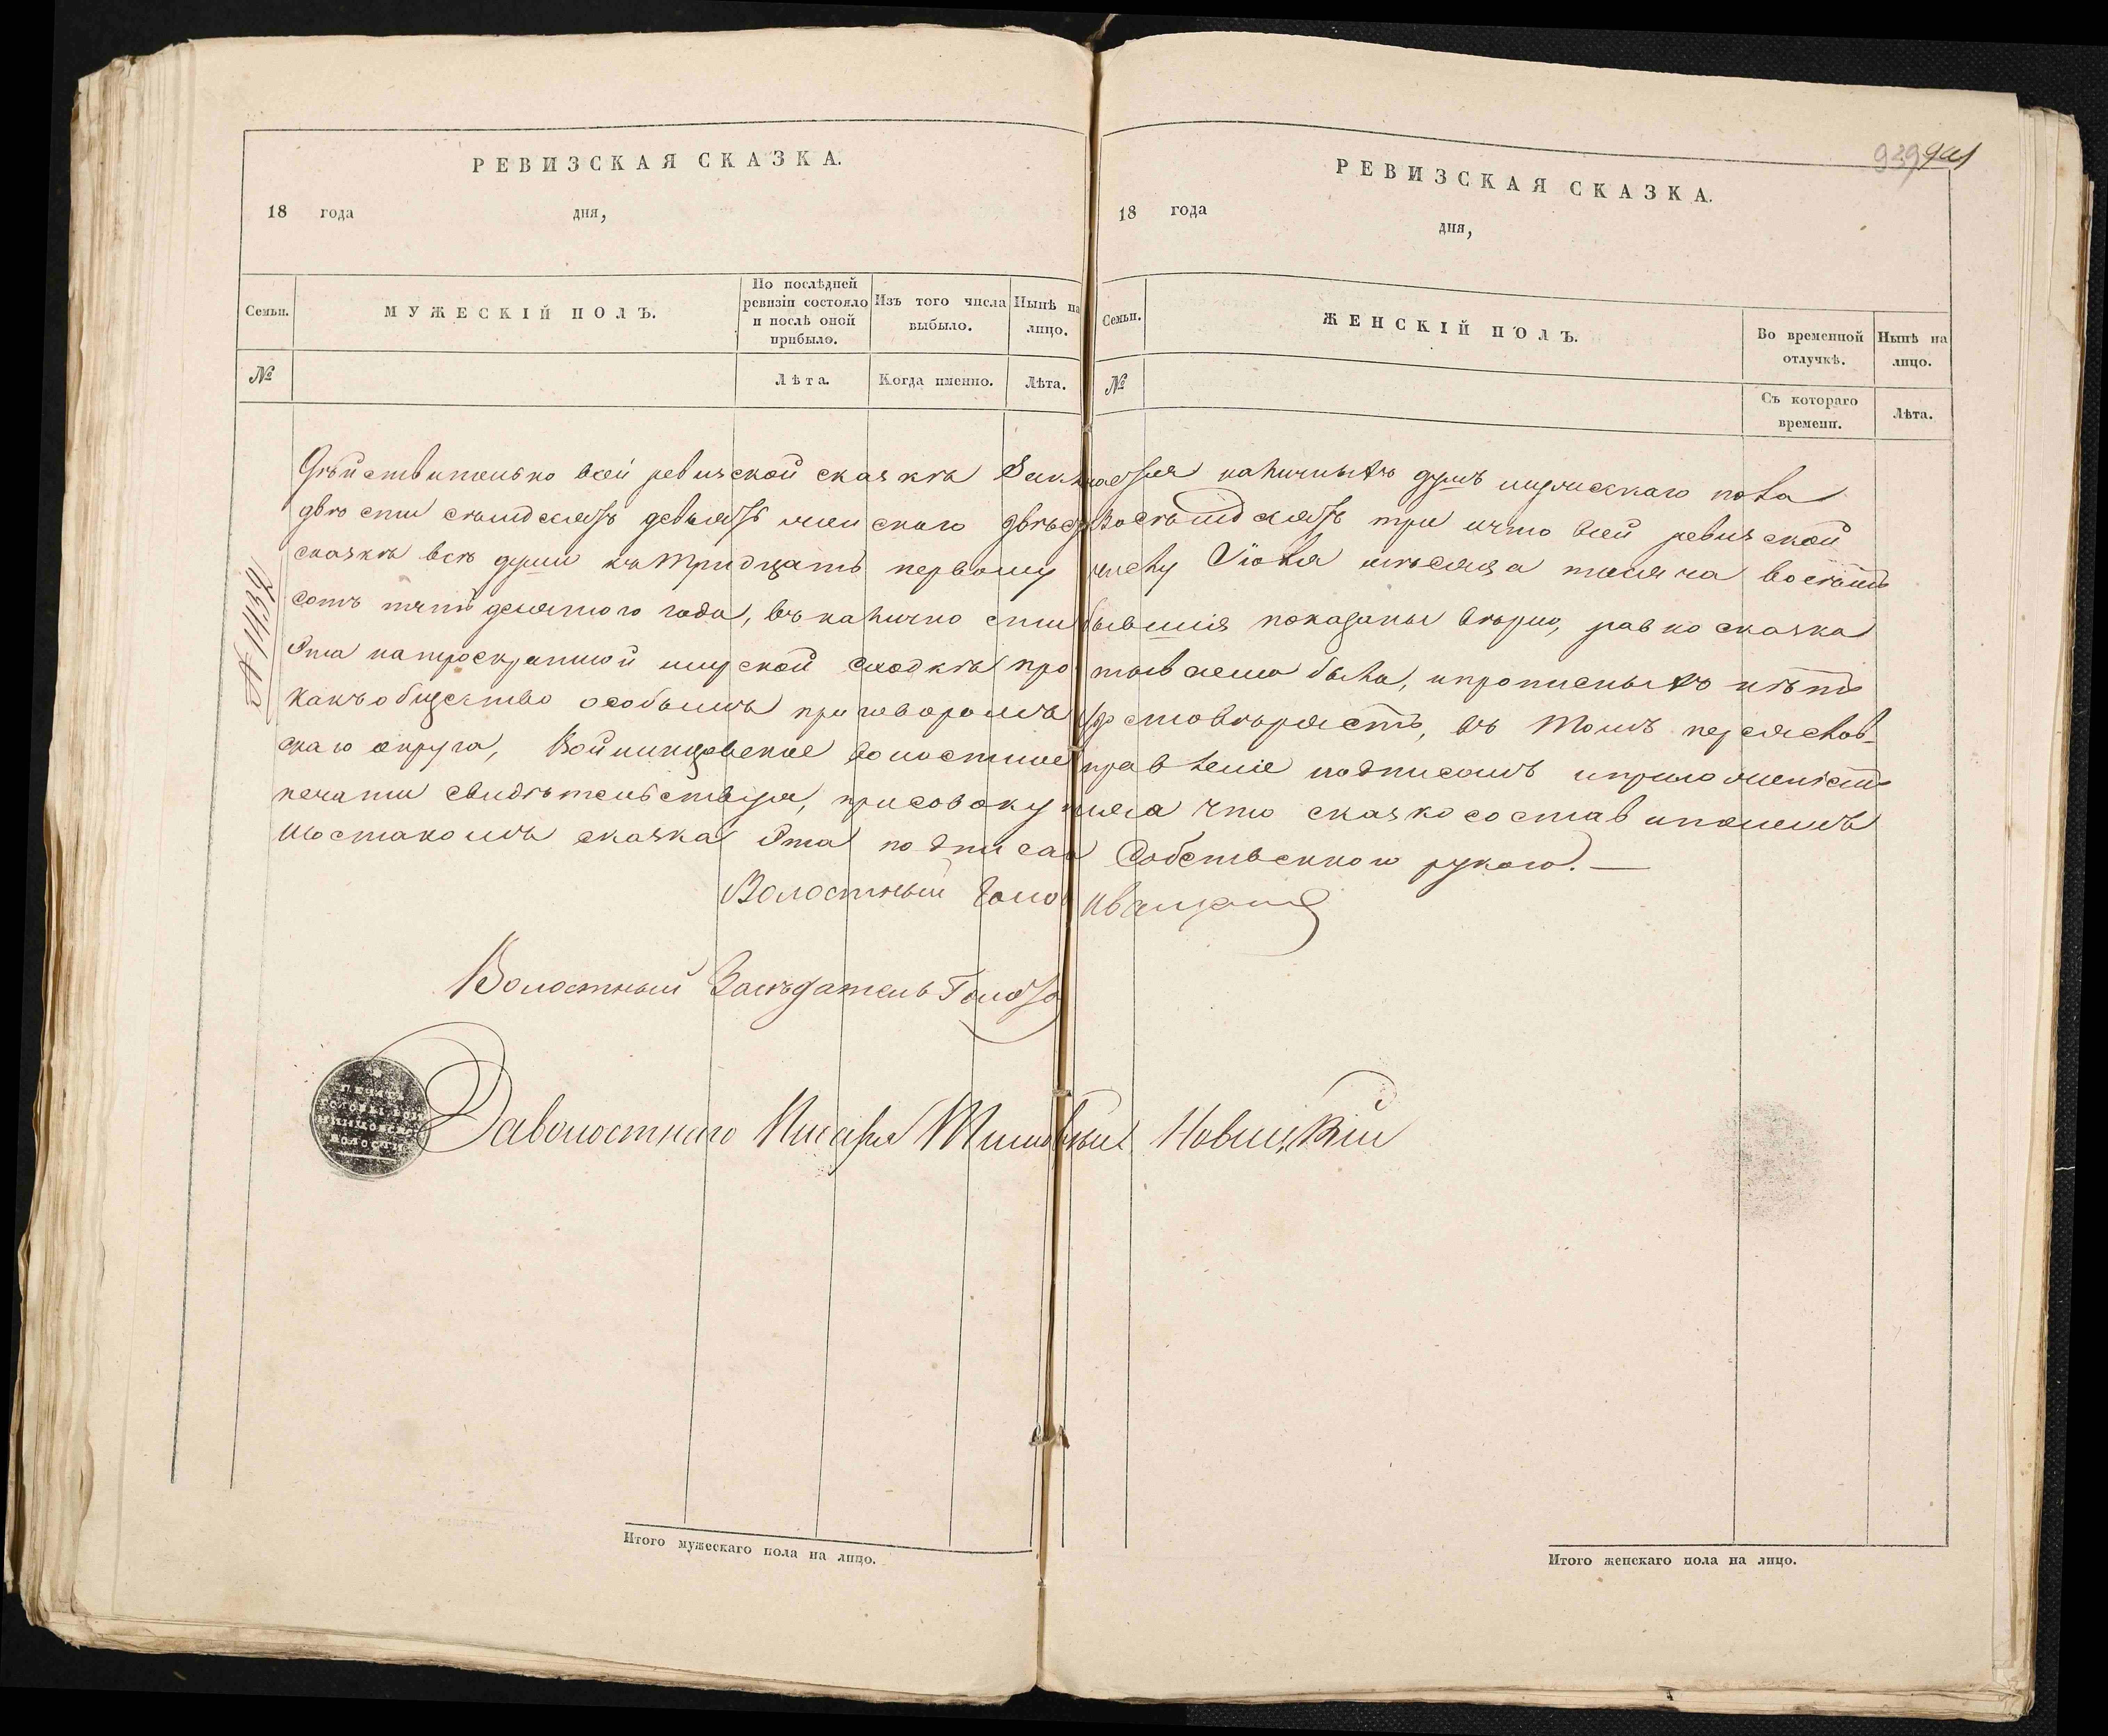 РЕВИЗСКАЯ СКАЗКА.
18 года дня,
Семьи. МУЖЕСКІЙ ПОЛЪ. По послѣдней ревизіи состояло и послѣ оной прибыло. Изъ того числа выбыло. Нынѣ на лицо.
№ Лѣта. Когда именно. Лѣта.
РЕВИЗСКАЯ СКАЗКА.
18 года дня,
929
Семьи. ЖЕНСКІЙ ПОЛЪ. Во временной отлучкѣ. Нынѣ на лицо.
№ Съ котораго времени. Лѣта.
№ 1432
Дѣйствительно въ сей ревизской сказкѣ наличныхъ душъ мужескаго пола
двѣсти семдесятъ девьять женскаго двѣсти восемдесятъ три и что въ сей ревизской
сказкѣ всѣ души къ тридцать первому числу Іюля мѣсяца тысяча восемь
сотъ пятдесятого года, въ наличности бывшія показаны вѣрно, равно сказка
эта на троекратной мирской сходкѣ прочитываема была, и прописныхъ нѣтъ
какъ общество особымъ приговоромъ удостовѣряетъ, въ томъ переяслов-
скаго округа, Войнинцовское волостное правленіе подписомъ и приложеніемъ
печати свидѣтельствуя, присовокупляя что сказкосоставителемъ
сказка эта подписана собственною рукою. —
Волостный Голова Иващенко
Волостный Засѣдатель
За волостнаго Писаря Новицкій
Итого мужескаго пола на лицо.
Итого женскаго пола на лицо.